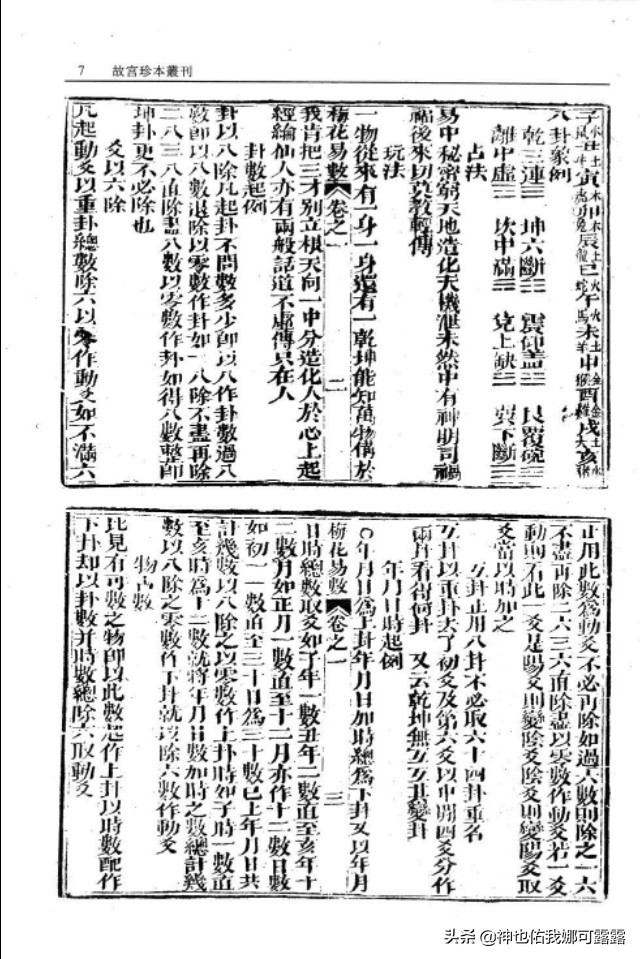 7 故宮珍本叢刊
子水鼠丑土牛寅木虎卯木兔辰土龍巳火蛇午火馬未土羊申金猴酉金雞戌土犬亥水豬
八卦象例
乾三連☰ 坤六斷☷ 震仰盂☳ 艮覆碗☶
離中虛☲ 坎中滿☵ 兌上缺☱ 巽下斷☴
占法
易中秘密窮天地造化天機泄未然中有神明司禍
福後來切莫教輕傳
玩法
一物從來有一身一身還有一乾坤能知萬物備於
梅花易數 卷之一 二
我肯把三才別立根天向一中分造化人於心上起
經綸仙人亦有兩般話道不虛傳只在人
卦數起例
卦以八除凡起卦不問數多少即以八作卦數過八
數即以八數退除以零數作卦如一八除不盡再除
二八三八直除盡八數以零數作卦如得八數整即
坤卦更不必除也
爻以六除
凡起動爻以重卦總數除六以零作動爻如不滿六
止用此數為動爻不必再除如過六數則除之一六
不盡再除二六三六直除盡以零數作動爻若一爻
動則看此一爻是陽爻則變陰爻陰爻則變陽爻取
爻當以時加之
互卦止用八卦不必取六十四卦重名
互卦以重卦去了初爻及第六爻以中間四爻分作
兩卦看得何卦 又云乾坤無互互其變卦
年月日時起例
○年月日為上卦年月日加時總為下卦又以年月
梅花易數 卷之一 三
日時總數取爻如子年一數丑年二數直至亥年十
二數月如正月一數直至十二月亦作十二數日數
如初一一數直至三十日為三十數已上年月日共
計幾數以八除之以零數作上卦時如子時一數直
至亥時為十二數就將年月日數加時之數總計幾
數以八除之零數作下卦就以除六數作動爻
物占數
凡見有可數之物即以此數起作上卦以時數配作
下卦却以卦數并時數總除六取動爻
头条 @神也佑我娜可露露